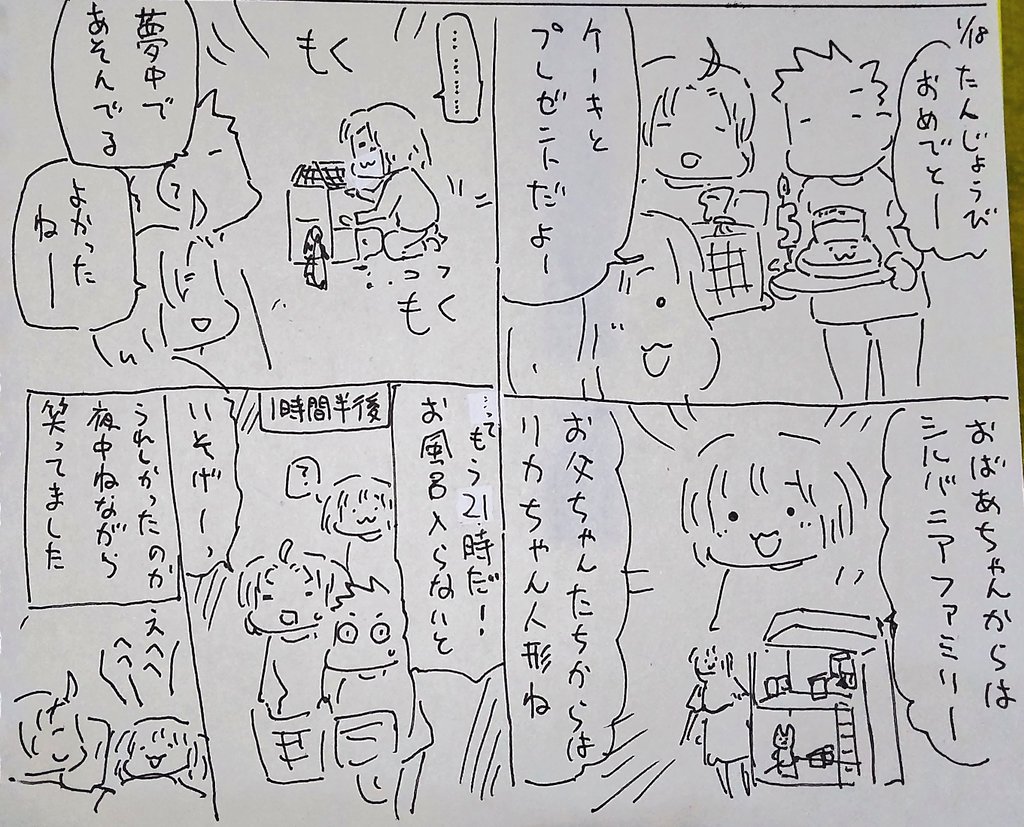 1/18
たんじょうび
おめでとー
ケーキと
プレゼントだよー
おばあちゃんからは
シルバニアファミリー
お父ちゃんたちからは
リカちゃん人形ね
…………
もく
もく
っ
っ
夢中で
あそんでる
よかった
ねー
1時間半後
って
もう21時だ!
お風呂入らないと
?
いそげーっ
うれしかったのか
夜中ねながら
笑ってました
えへへ
へへへ